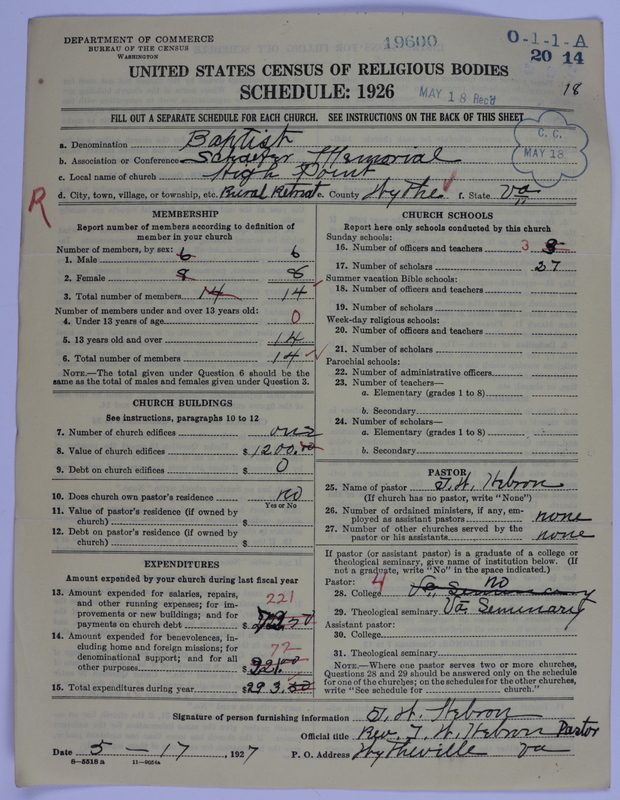 DEPARTMENT OF COMMERCE
BUREAU OF THE CENSUS
WASHINGTON
19600
O-1-1-A
20 14
UNITED STATES CENSUS OF RELIGIOUS BODIES
SCHEDULE: 1926
MAY 18 Rec'd
18
FILL OUT A SEPARATE SCHEDULE FOR EACH CHURCH. SEE INSTRUCTIONS ON THE BACK OF THIS SHEET
C. C.
MAY 18
a. Denomination Baptist
b. Association or Conference Schaefer Memorial
c. Local name of church High Point
d. City, town, village, or township, etc. Rural Retreat e. County Wythe f. State Va
R
MEMBERSHIP
Report number of members according to definition of
member in your church
Number of members, by sex:
1. Male 6 6
2. Female 8 8
3. Total number of members 14 14
Number of members under and over 13 years old:
4. Under 13 years of age 0
5. 13 years old and over 14
6. Total number of members 14
NOTE.—The total given under Question 6 should be the
same as the total of males and females given under Question 3.
CHURCH BUILDINGS
See instructions, paragraphs 10 to 12
7. Number of church edifices one
8. Value of church edifices $ 1200.00
9. Debt on church edifices $ 0
10. Does church own pastor's residence no
Yes or No
11. Value of pastor's residence (if owned by
church) $
12. Debt on pastor's residence (if owned by
church) $
EXPENDITURES
Amount expended by your church during last fiscal year
13. Amount expended for salaries, repairs, 221
and other running expenses; for im-
provements or new buildings; and for
payments on church debt $ 72.50
14. Amount expended for benevolences, in- 72
cluding home and foreign missions; for
denominational support; and for all
other purposes $ 221.00
15. Total expenditures during year $ 293.50
CHURCH SCHOOLS
Report here only schools conducted by this church
Sunday schools:
16. Number of officers and teachers 3
17. Number of scholars 27
Summer vacation Bible schools:
18. Number of officers and teachers
19. Number of scholars
Week-day religious schools:
20. Number of officers and teachers
21. Number of scholars
Parochial schools:
22. Number of administrative officers
23. Number of teachers—
a. Elementary (grades 1 to 8)
b. Secondary
24. Number of scholars—
a. Elementary (grades 1 to 8)
b. Secondary
PASTOR
25. Name of pastor T. W. Hebron
(If church has no pastor, write "None")
26. Number of ordained ministers, if any, em-
ployed as assistant pastors none
27. Number of other churches served by the
pastor or his assistants none
If pastor (or assistant pastor) is a graduate of a college or
theological seminary, give name of institution below. (If
not a graduate, write "No" in the space indicated.)
Pastor: 4 no
28. College Va. Seminary
29. Theological seminary Va. Seminary
Assistant pastor:
30. College
31. Theological seminary
NOTE.—Where one pastor serves two or more churches,
Questions 28 and 29 should be answered only on the schedule
for one of the churches; on the schedules for the other churches,
write "See schedule for church."
Signature of person furnishing information T. W. Hebron
Official title Rev. T. W. Hebron Pastor
Date 5 - 17, 1927 P. O. Address Wytheville Va
8-5518 a 11-9034a